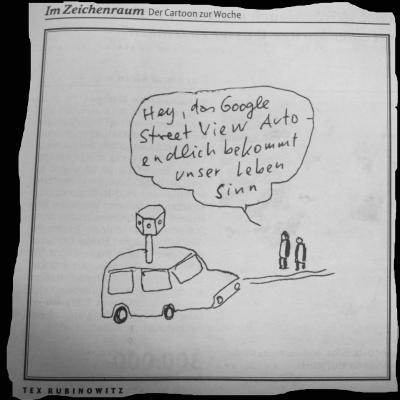 Im Zeichenraum Der Cartoon zur Woche
Hey, das Google
Street View Auto
endlich bekommt
unser Leben
Sinn
TEX RUBINOWITZ